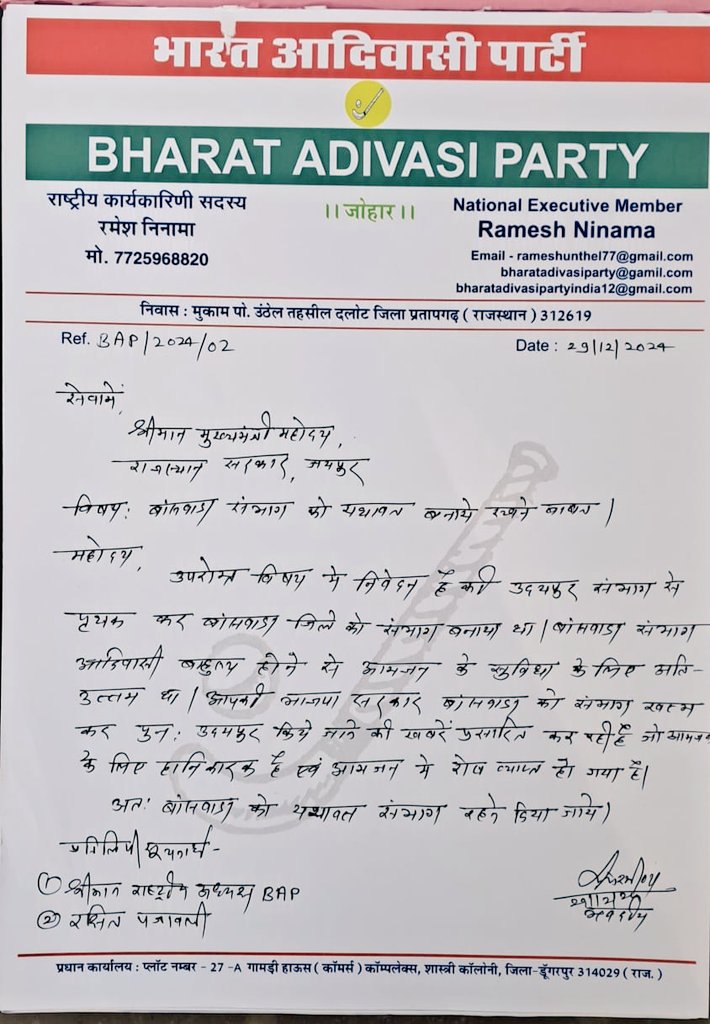 भारत आदिवासी पार्टी
BHARAT ADIVASI PARTY
राष्ट्रीय कार्यकारिणी सदस्य
रमेश निनामा
मो. 7725968820
।।जोहार।।
National Executive Member
Ramesh Ninama
Email - rameshunthel77@gmail.com
bharatadivasiparty@gamil.com
bharatadivasipartyindia12@gmail.com
निवास : मुकाम पो. उंठेल तहसील दलोट जिला प्रतापगढ़ ( राजस्थान ) 312619
Ref. BAP/2024/02
Date : 29/12/2024
सेवामें,
श्रीमान मुख्यमंत्री महोदय,
राजस्थान सरकार, जयपुर
विषय: बांसवाडा संभाग को यथावत बनाये रखने बाबत।
महोदय,
उपरोक्त विषय मे निवेदन है की उदयपुर संभाग से
पृथक कर बांसवाडा जिले को संभाग बनाया था। बांसवाडा संभाग
आदिवासी बहुल्य होने से आमजन के सुविधा के लिए अति-
उत्तम था। आपकी भाजपा सरकार बांसवाडा को संभाग खत्म
कर पुन: उदयपुर किये जाने की खबरें प्रसारित कर रही है जो आमजन
के लिए हानिकारक है एवं आमजन मे रोष व्याप्त हो गया है।
अत: बांसवाडा को यथावत संभाग रहने दिया जाये।
प्रतिलिपी सूचनार्थ-
① श्रीमान राष्ट्रीय अध्यक्ष BAP
② रक्षित पत्रावली
भवदीय
प्रधान कार्यालय : प्लॉट नम्बर - 27 -A गामड़ी हाऊस ( कॉमर्स ) कॉम्पलेक्स, शास्त्री कॉलोनी, जिला-डूँगरपुर 314029 ( राज. )